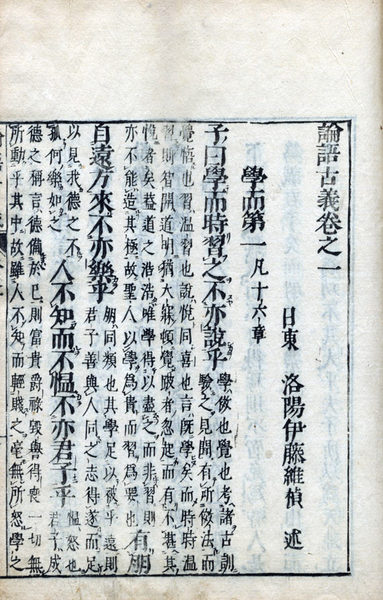 論語古義卷之一
日東 洛陽伊藤維楨 述
學而第一 凡十六章
子曰學而時習之不亦說乎
學傚也覺也考諸古訓
驗之見聞有所傚法而
覺悟也習温習也說悅同喜也言既學矣而時時温
習則智開道明猶大寐頓覺跛者忽起而有不堪其
悅者矣蓋道之浩浩唯學得以盡之而非習則
亦不能造其極故聖人以學為貴而習為要也
有朋
自遠方來不亦樂乎
朋同類也其學足以被乎遠則
君子善與人同之志得遂而足
以見我德之不
孤何樂如之
人不知而不愠不亦君子乎
愠怒也
君子成
德之稱言德備於己則富貴爵祿毀譽得喪一切無
所動乎其中故雖人不知而輕賤之毫無所怒學之